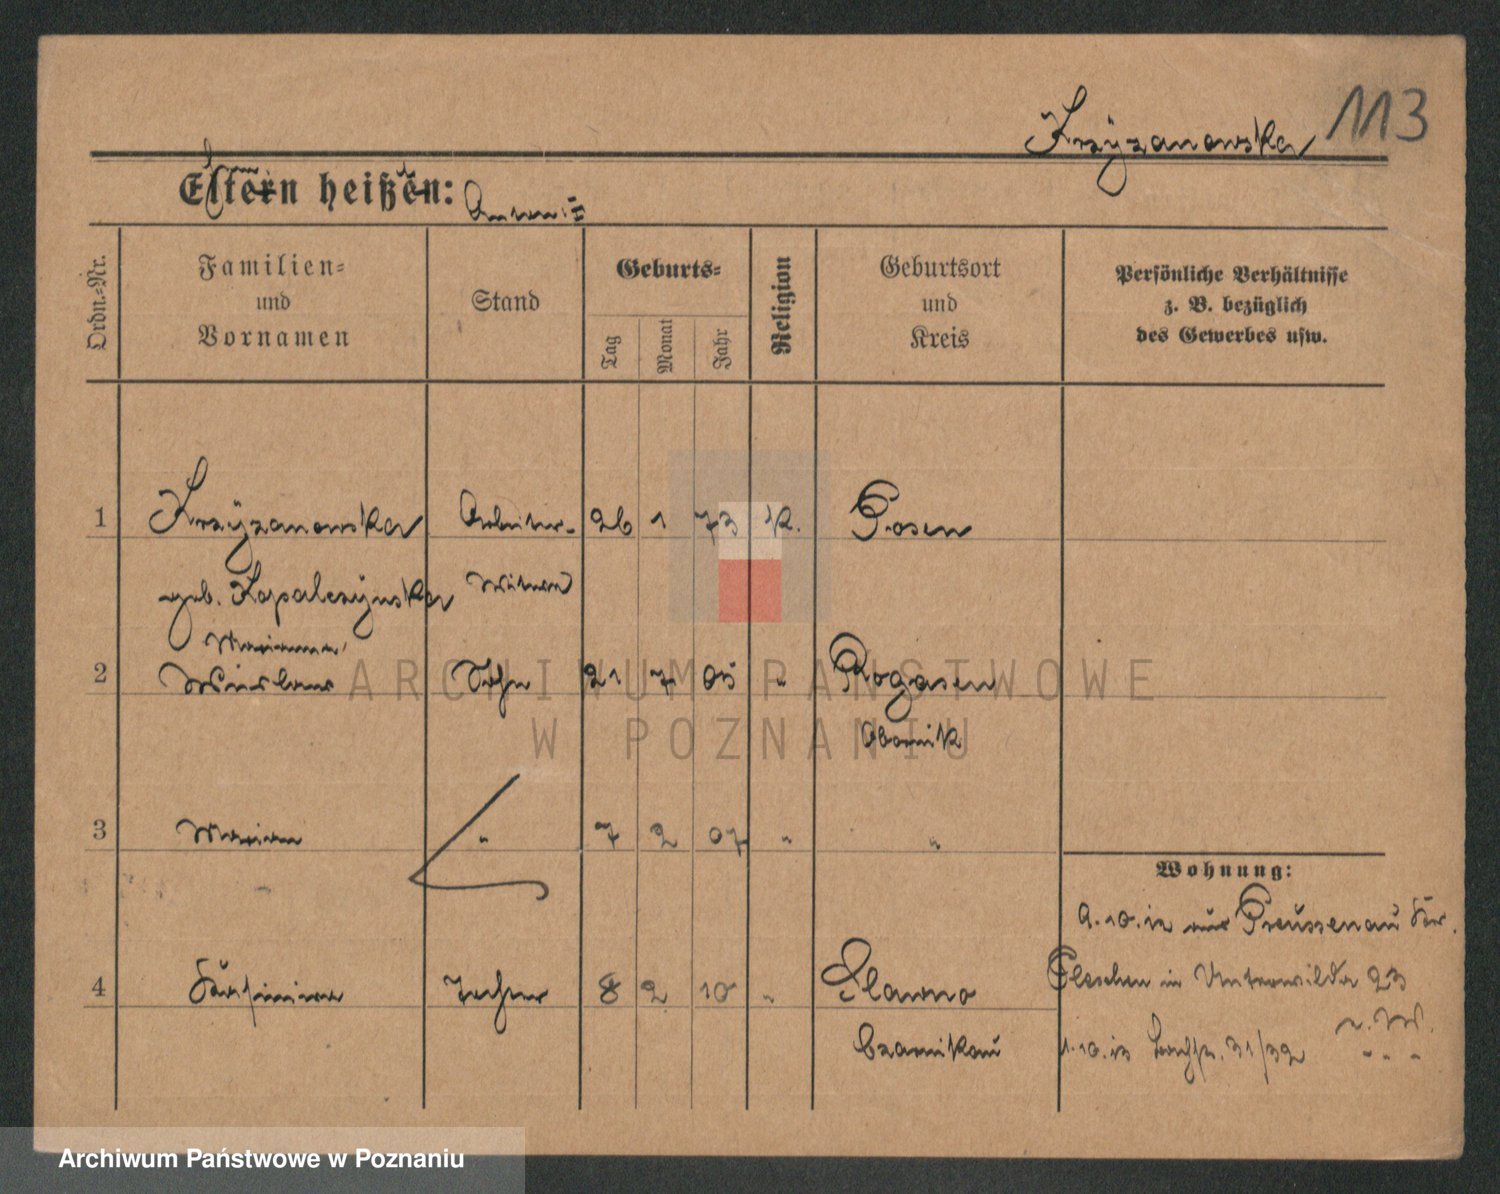 Krzyżanowska 113
Eltern heißen:
Ordn.-Nr.
Familien-
und
Vornamen
Stand
Geburts-
Tag
Monat
Jahr
Religion
Geburtsort
und
Kreis
Persönliche Verhältnisse
z. B. bezüglich
des Gewerbes usw.
1 Krzyżanowska Arbeiter- 26 1 73 k. Posen
geb. Kopalczynska Witwe
Marianna
2 Sohn 21 7 05 " Rogasen
Obornik
3 Marian " 7 2 07 " "
Wohnung:
9.10.12 aus Preussenau Kr.
4 Tochter 8 2 10 " Slawno
Pleschen in Unterwilda 23
Czarnikau
1.10.13 31/32
ARCHIWUM PAŃSTWOWE
W POZNANIU
Archiwum Państwowe w Poznaniu